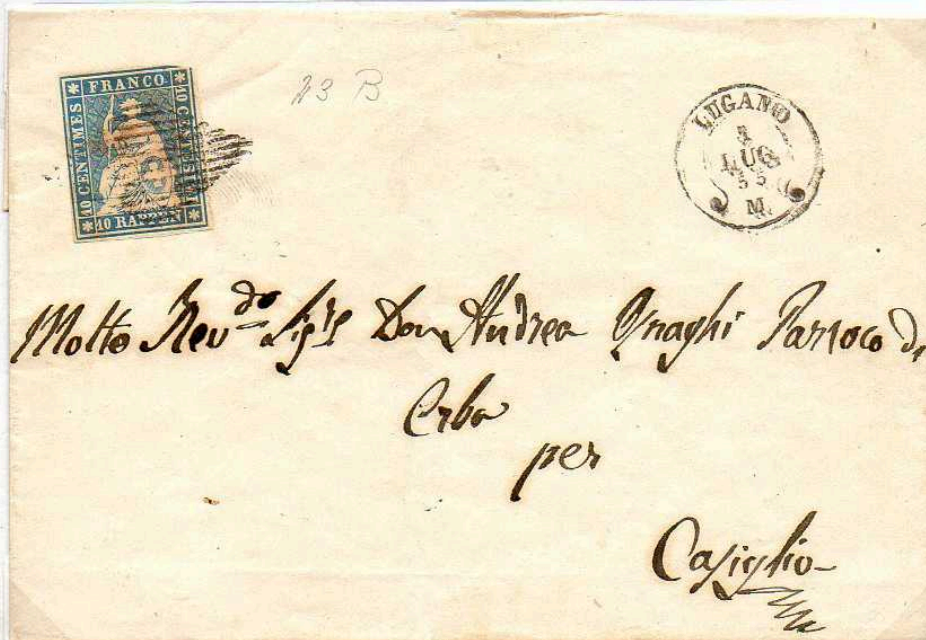 FRANCO
10 CENTIMES
10 CENTESIMI
10 RAPPEN
23 B
LUGANO
LUG
55
M.
Molto Rev.do Sig.re Don Andrea Ynaghi Parroco di
Erba
per
Casiglio